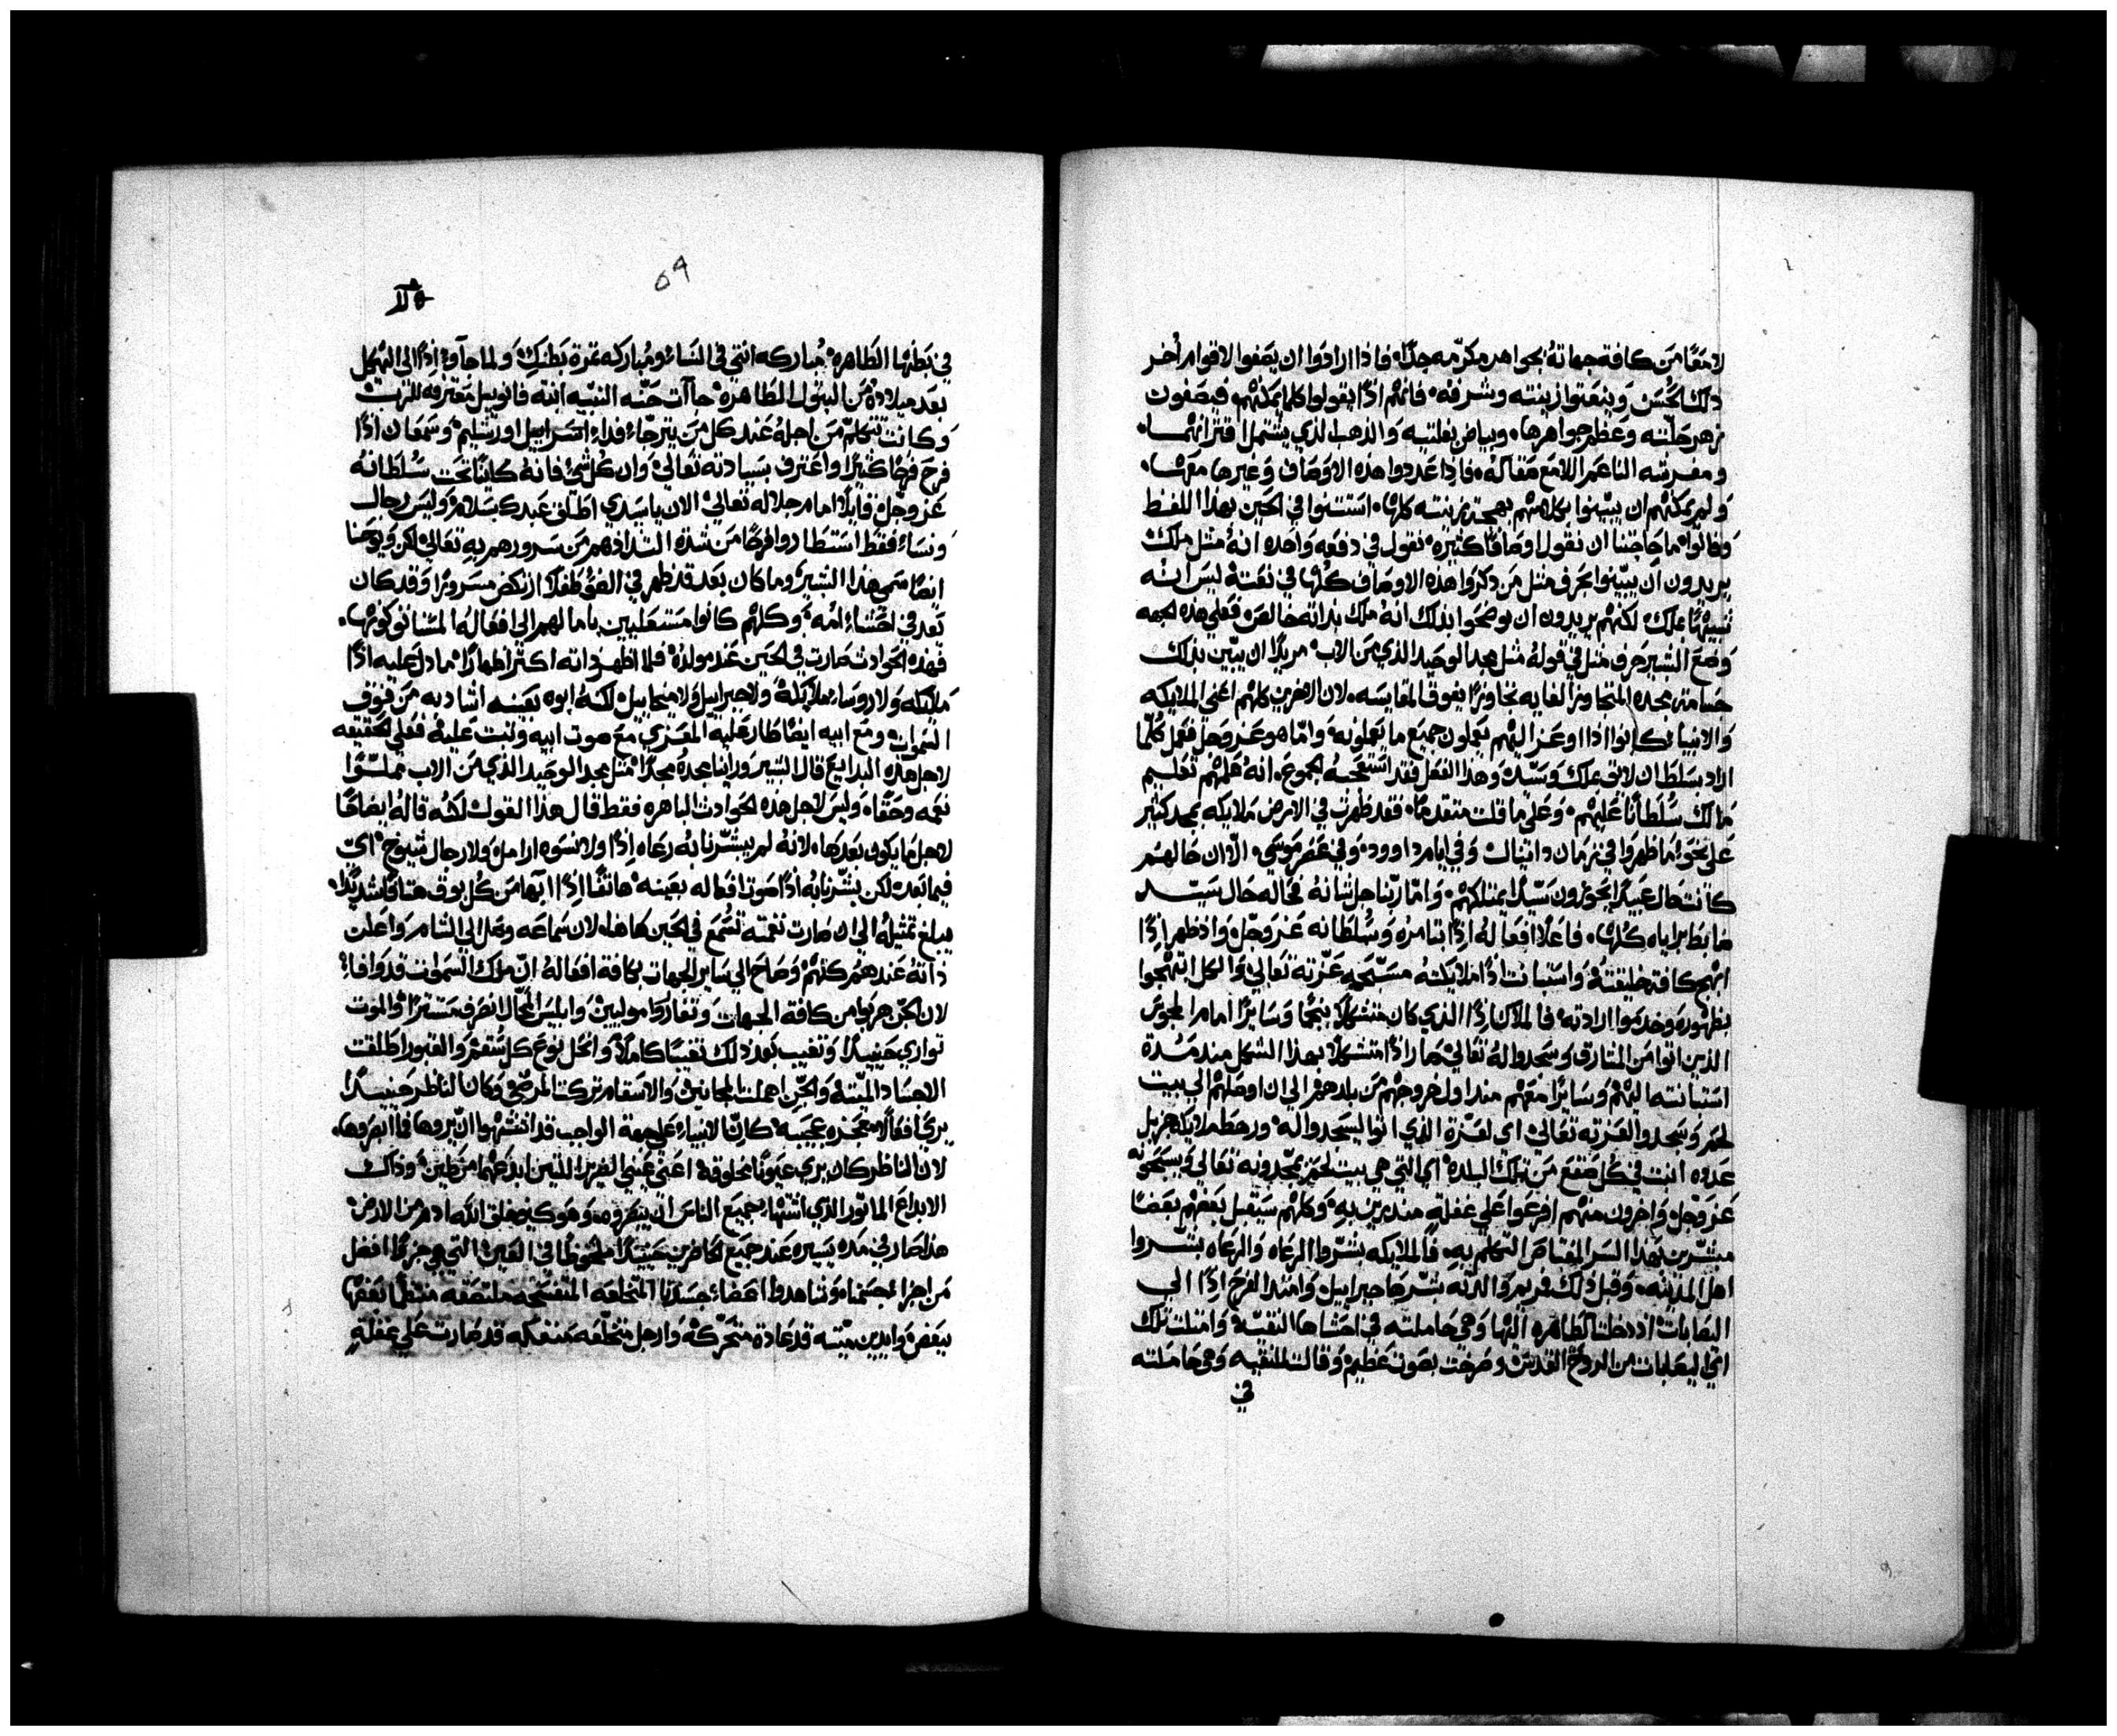 لامعًا من كافة جهاته بجواهر مكرّمه جدًا، فاذا ارادوا ان يصفوا لاقوام اخر
ذلك الحسن وينعتوا زينته وشرفه، فانهم اذًا يقولوا كلما يمكنهم، فيصفون
زهر حلّته وعظم جواهرها، وبياض بغلتيه والذهب الذي يشتمل اقترانهما،
ومفرشه الناعم اللامع مقاله، فاذا عددوا هذه الاوصاف وغيرها معها،
ولم يمكنهم ان يبيّنوا بكلامهم بهجة زينته كلها، استثنوا في الحين بهذا اللفظ
وقالوا ما حاجتنا ان نقول اوصافًا كثيره، نقول في دفعه واحده انه مثل ملك
يريدون ان يبيّنوا بحرف مثل من ذكروا هذه الاوصاف كلها في نعته ليس انه
شبيهًا بملك لكنهم يريدون ان يوضحوا بذلك انه ملك بذاته خالص، فعلى هذه الجهه
وضع البشير حرف مثل في قوله مثل مجد الوحيد الذي من الاب، مريدًا ان يبيّن بذلك
جسامة مجده المتجاوز الغايه تجاوزًا يفوق المقايسه، لان الاخرين كلهم اعني الملايكه
والانبيا كانوا اذا اوعز اليهم يعملون جميع ما يعملونه، وامّا هو عز وجل فعمل كلّما
اراد بسلطان لايق بملك وسيّد وهذا الفعل فقد استعجبه الجموع، انه علمهم تعليم
مالك سلطانًا عليهم، وعلى ما قلت متقدمًا، فقد ظهرت في الارض ملايكه بمجد كثير
على نحو ما ظهروا في زمان دانيال وفي ايام داوود، وفي عصر موسى، الّا ان حالهم
كانت حال عبيد يحوزون سيّدًا يمتلكهم، وامّا ربّنا جل شانه فحاله حال سيّد
ضابط براياه كلها، فاعلًا افعاله اذًا بتامره وسلطانه عز وجلّ واذ ظهر اذًا
ابهج كافة خليقته، واستبانت اذًا ملايكته مسبّحه عزته تعالى والكل ابتهجوا
بظهوره وخدموا ارادته، فالملاك اذًا الذي كان متشكلًا بنجمًا وسايرًا امام المجوس
الذين اتوا من المشارق ليسجدوا له تعالى صار اذًا متشكلًا بهذا الشكل منذ مدة
استبانته اليهم وسايرًا معهم منذ اول خروجهم من بلدهم الى ان اوصلهم الى بيت
لحم وسجدوا لعزته تعالى اي لعزة الذي اتوا ليسجدوا له، ورحط ملايكه جزيل
عدده اتت في كل صقع من تلك البلده اي التي هي بيت لحم يمجّدونه تعالى ويسبحونه
عز وجل واخرون منهم افزعوا على غفلة منذرين به، وكلهم يستقبل بعضهم بعضًا
مبشّرين بهذا السر المعتاص التكلم به، فالملايكه بشّروا الرعاه والرعاه بشّروا
اهل المدينه، وقبل ذلك فمريم والدته بشّرها جبراييل، وامتدا الفرح اذًا الى
اليصابات اذ دخلت الطاهره اليها وهي حاملته في احشاها النقيّه، وامتلت تلك
اي اليصابات من الروح القدس، وصرخت بصوت عظيم وقالت للنقيه وهي حاملته
في
٥٩
في بطنها الطاهره، مباركه انتي في النساء ومباركه ثمرة بطنك، ولما جآو به اذًا الى الهيكل
بعد ميلاده من البتول الطاهره جآات حنّه النبيّه ابنة فانوييل معترفه للرب
وكانت تتكلم من اجله عند كل من يترجّا فداء اسراييل اورشليم، وسمعان اذًا
فرح فرحًا كثيرًا واعترف بسيادته تعالى وان كل شي فانه كاينًا تحت سلطانه
عز وجل، قايلًا امام جلاله تعالى الان ياسيدي اطلق عبدك بسلام، وليس رجال
ونساء فقط استطاروا فرحًا من شدة التذاذهم من سرورهم به تعالى لكن ويوحنا
ايضًا سمي هذا البشير وما كان بعد قد ظهر في الضو طفلًا ارتكض مسرورًا وقد كان
بعد في احشاء امه، وكلهم كانوا مستعلين بامالهم الى افعاله المستانف كونها،
فهذه الحوادث صارت في الحين عند مولده، فلما اظهر ذاته اكثر اظهارًا ما دل عليه اذًا
ملايكه ولا روساء ملايكه ولا جبراييل ولا ميخاييل لكنه ابوه بعينه اشاد به من فوق
السموات ومع ابيه ايضًا ظار عليه المعزي مع صوت ابيه وثبت عليه فعلى الحقيقه
لاجل هذه البدايع قال البشير وراينا مجده مجدًا مثل مجد الوحيد الذي من الاب مملوًا
نعمه وحقًا، وليس لاجل هذه الحوادث الباهره فقط قال هذا القول لكنه قاله ايضًا
لاجل ما يكون بعدها، لانه لم يبشّرنا به رعاه اذًا ولا نسوه ارامل ولا رجال شيوخ، اي
فيما بعد لكن بشّرنا به اذًا صوت افعاله بعينه، هاتفًا اذًا ابها من كل بوق هتافًا شديدًا،
يبلغ تمثيله الى ان صارت نغمته تسمع في الحين هاهنا، لان سماعه وصل الى الشام واعلن
ذاته عند هم كلهم وصاح الى ساير الجهات بكافة افعاله ان ملك السموات قد وافا،
لان الجن هربوا من كافة الجهات وتفاروا موليين، وابليس المحّال انصرف مستترًا، والموت
توارى حينيذًا وتغيب بعد ذلك تغيبًا كاملًا، وانحل نوع كل سقم والقبور اطلقت
الاجساد الميّتة والجن اهملت المجانين، والاسقام تركت المرضى وكان الناظر حينيذًا
يرى افعالًا معجزه عجيبه، كانّ الانبياء على جهة الواجب قد اشتهوا ان يروها فما ابصروها،
لان الناظر كان يرى عيونًا مخلوقه، اعني عيني الضرير اللتين ابدعهما من طين، وذلك
الابداع الماثور الذي اشتهاه جميع الناس ان يبصروه، وهو كيف خلق الله ادم من الارض
هذا صار في مده يسيره عند جميع الحاضرين حينيذًا ملحوظًا في العين التي هي جزوًا افضل
من اجزاء اجسامنا، وشاهدوا اعضاء جسدنا المتخلعه المتفسّخه ملتصقه متصلًا بعضها
ببعض وايدين ميّته قد عادة متحرّكه وارجل متخلّعه منفكه قد صارت على غفلة